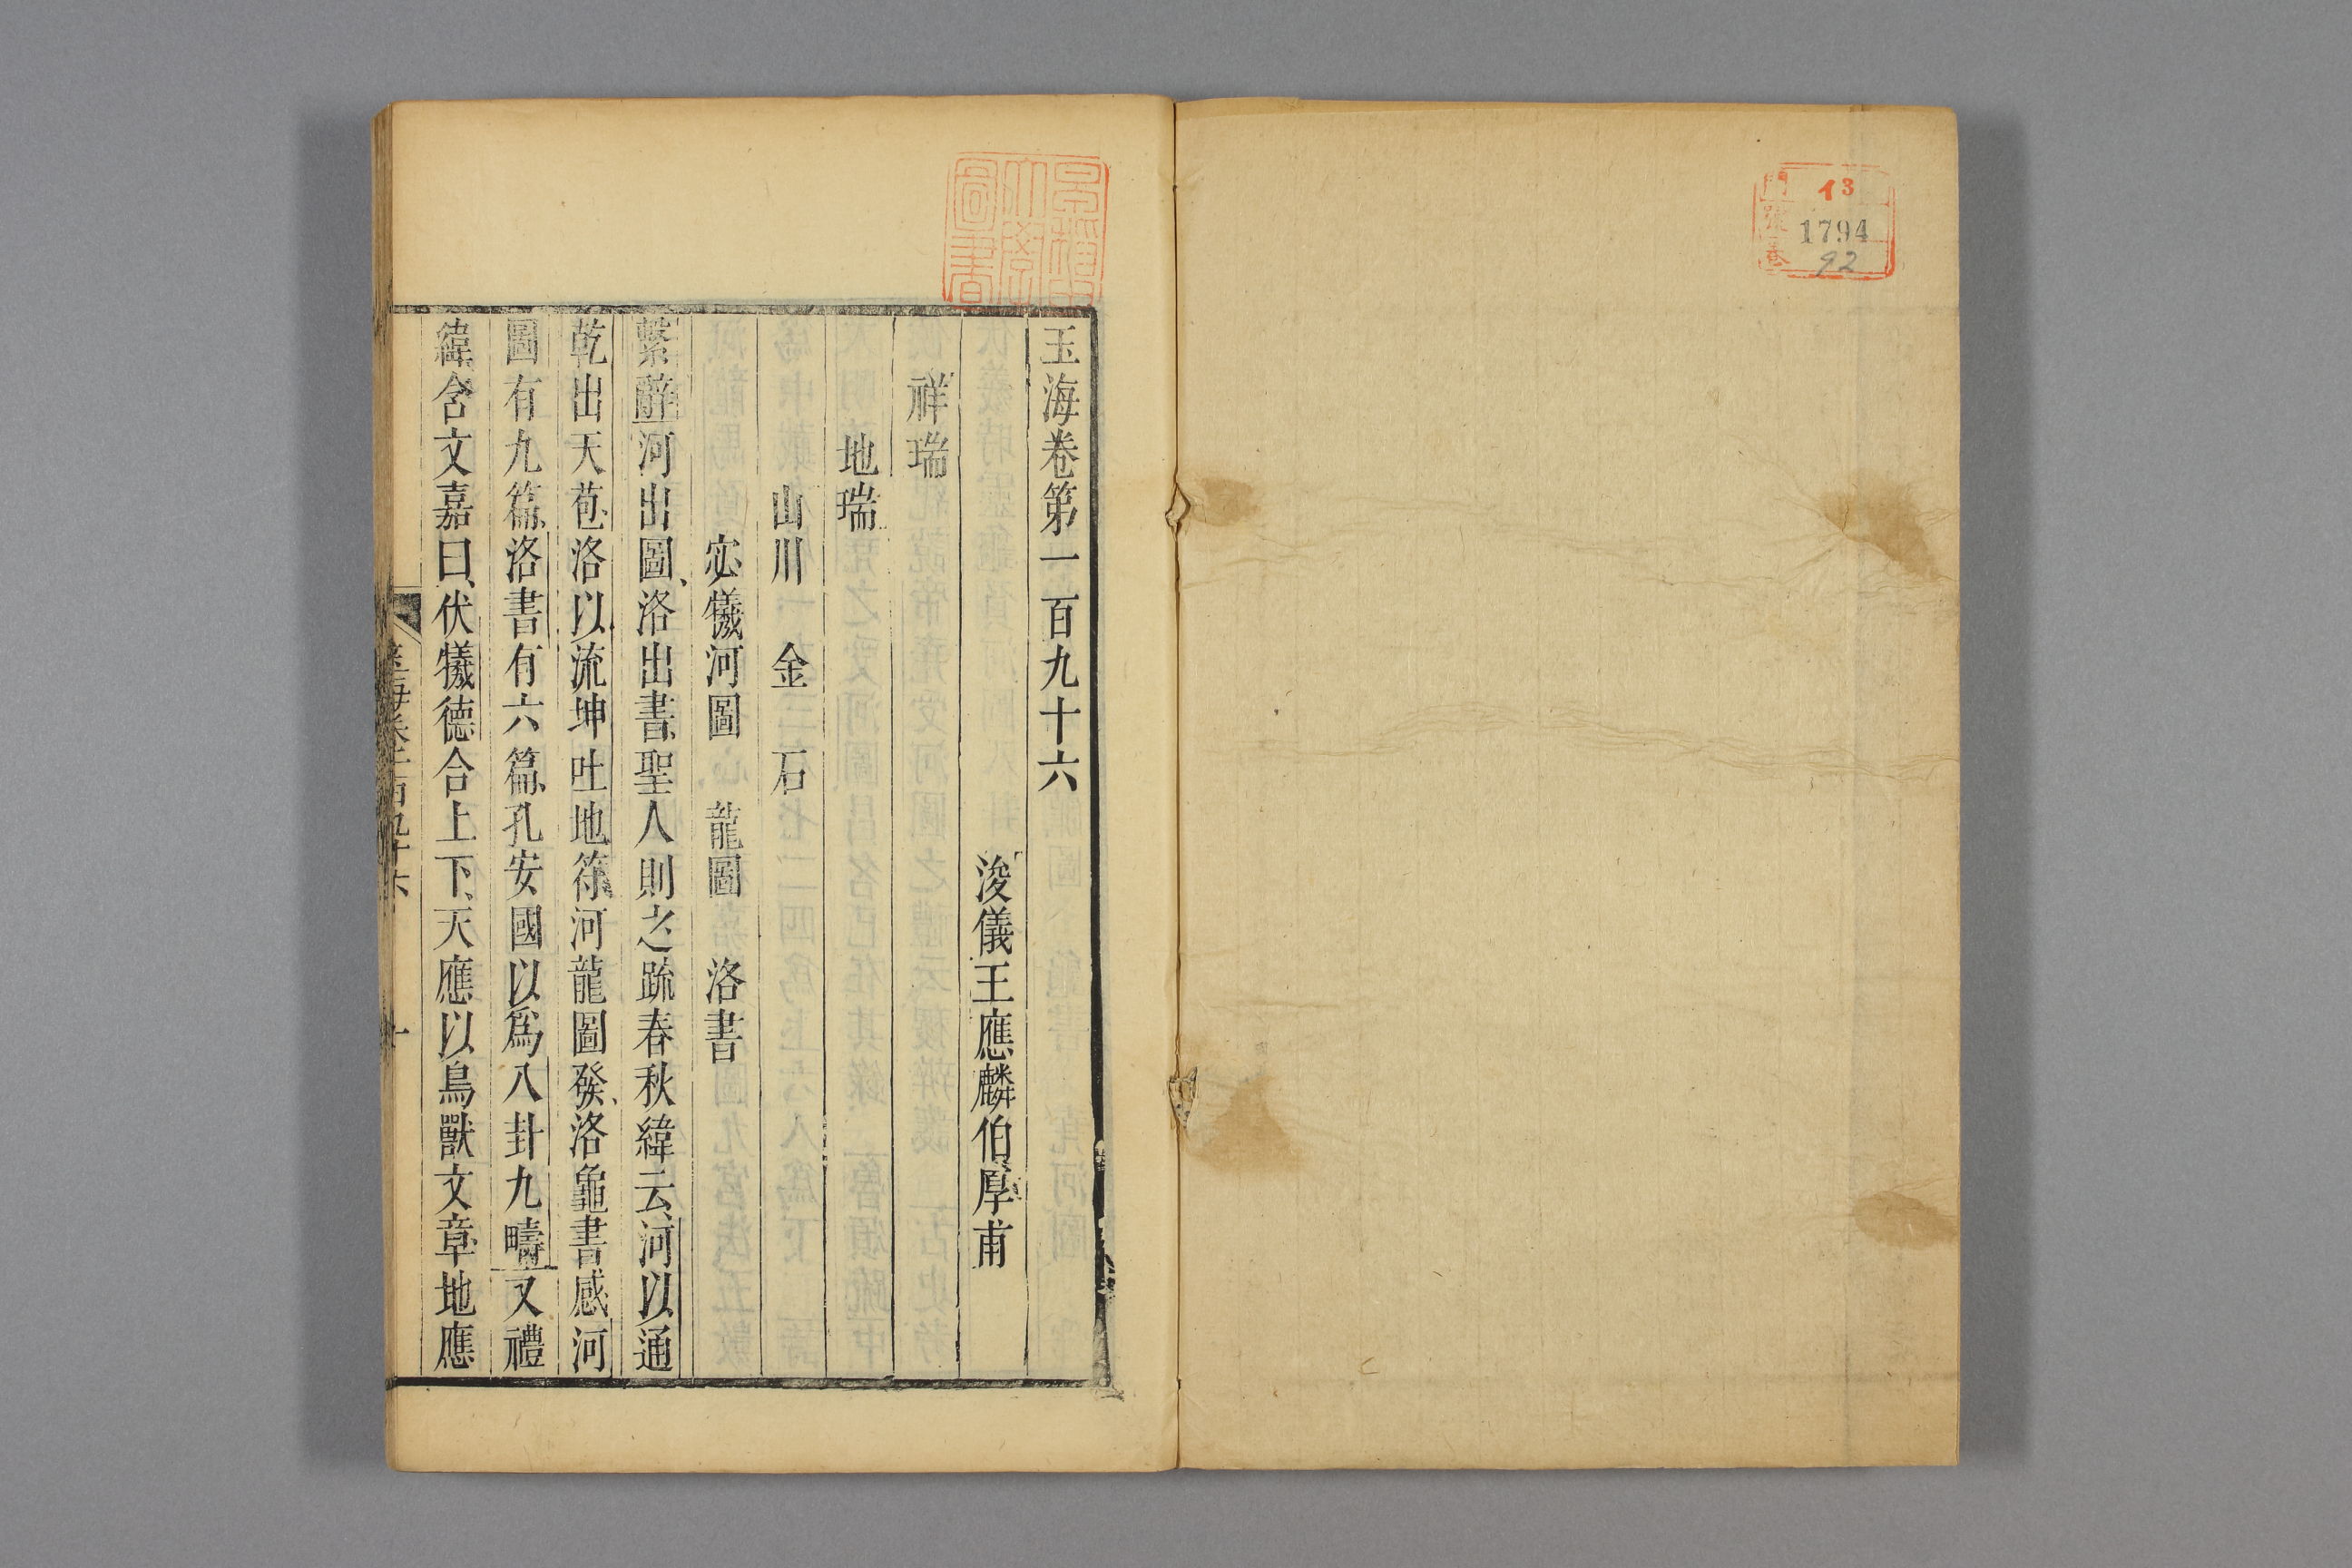 門 イ3
號 1794
卷 92
早稲田大學圖書
玉海卷第一百九十六
浚儀王應麟伯厚甫
祥瑞
地瑞
山川 金 石
宓犧河圖 龍圖 洛書
繫辭河出圖、洛出書、聖人則之疏春秋緯云、河以通
乾出天苞、洛以流坤吐地符、河龍圖發、洛龜書感、河
圖有九篇、洛書有六篇、孔安國以爲八卦九疇又禮
緯含文嘉曰、伏犧德合上下、天應以鳥獸文章、地應
玉海卷一百九十六
一